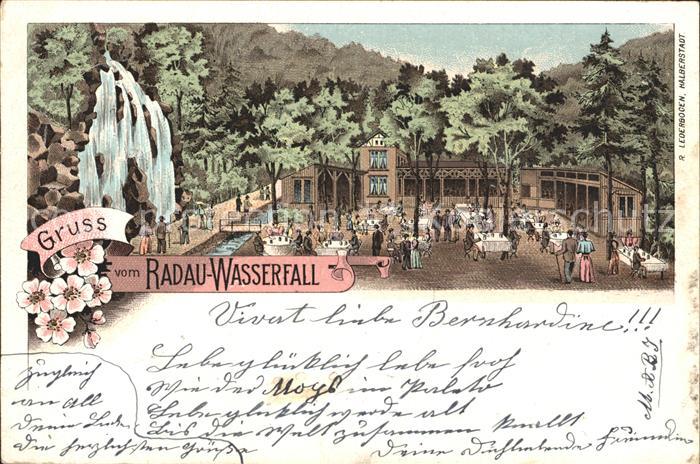 Gruss
vom RADAU-WASSERFALL
R. LEDERBOGEN, HALBERSTADT
Vivat liebe Bernhardine!!!
Lebe glücklich lebe froh
Wie der Mops im Paleto
Lebe glücklich werde alt
bis die Welt zusammen knallt
Deine Freundin
zugleich
an all
Deine
die herzlichsten Grüße